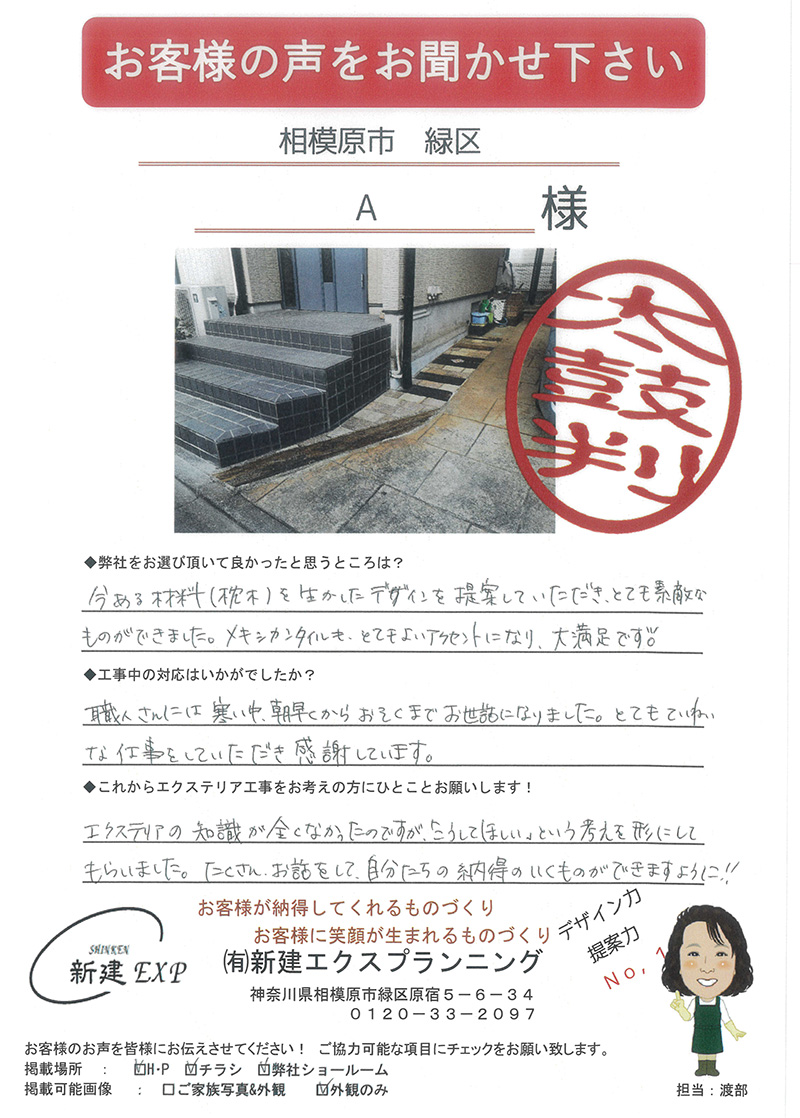 お客様の声をお聞かせ下さい
相模原市　緑区
A 様
太鼓判
◆弊社をお選び頂いて良かったと思うところは？
今ある材料(枕木)を生かしたデザインを提案していただき、とても素敵な
ものができました。メキシカンタイルも、とてもよいアクセントになり、大満足です。
◆工事中の対応はいかがでしたか？
職人さんには寒い中、朝早くからおそくまでお世話になりました。とてもていねい
な仕事をしていただき感謝しています。
◆これからエクステリア工事をお考えの方にひとことお願いします！
エクステリアの知識が全くなかったのですが、「こうしてほしい」という考えを形にして
もらいました。たくさんお話をして、自分たちの納得のいくものができますように!!
お客様が納得してくれるものづくり
お客様に笑顔が生まれるものづくり
デザイン力
提案力
No，1
SHINKEN
新建 EXP
㈲新建エクスプランニング
神奈川県相模原市緑区原宿５－６－３４
０１２０－３３－２０９７
お客様のお声を皆様にお伝えさせてください！　ご協力可能な項目にチェックをお願い致します。
掲載場所　：　☑H・P　☑チラシ　☑弊社ショールーム
掲載可能画像　：　□ご家族写真&外観　☑外観のみ
担当：渡部